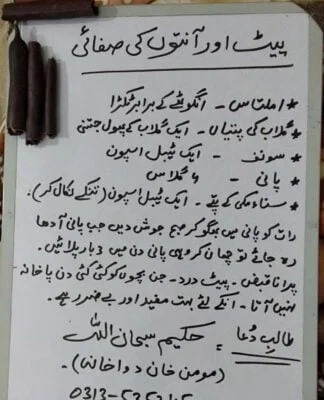 پیٹ اور آنتوں کی صفائی
* املتاس - انگوٹھے کے برابر ٹکڑا
* گلاب کی پتیاں - ایک گلاب کے پھول جتنی
* سونف - ایک ٹیبل اسپون
* پانی - گلاس
* سناء مکی کے پتے - ایک ٹیبل اسپون (تنکے نکال کر)۔
رات کو پانی میں بھگو کر صبح جوش دیں جب پانی آدھا
رہ جائے تو چھان کر وہی پانی دن میں 3 بار پلائیں۔
پرانا قبض - پیٹ درد - جن بچوں کو کئی کئی دن پاخانہ
نہیں آتا - انکے لئے بہت مفید اور بے ضرر ہے۔
طالبِ دُعا = حکیم سبحان اللہ
(مومن خان دواخانہ)۔
0313-